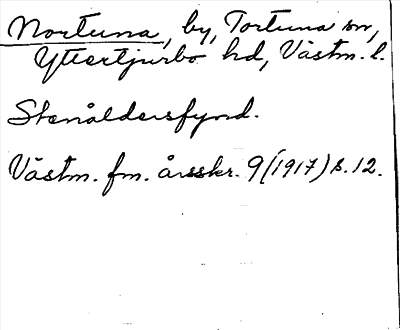 Nortuna, by, Tortuna sn,
Yttertjurbo hd, Västm. l.
Stenåldersfynd.
Västm. fm. årsskr. 9 (1917) s. 12.